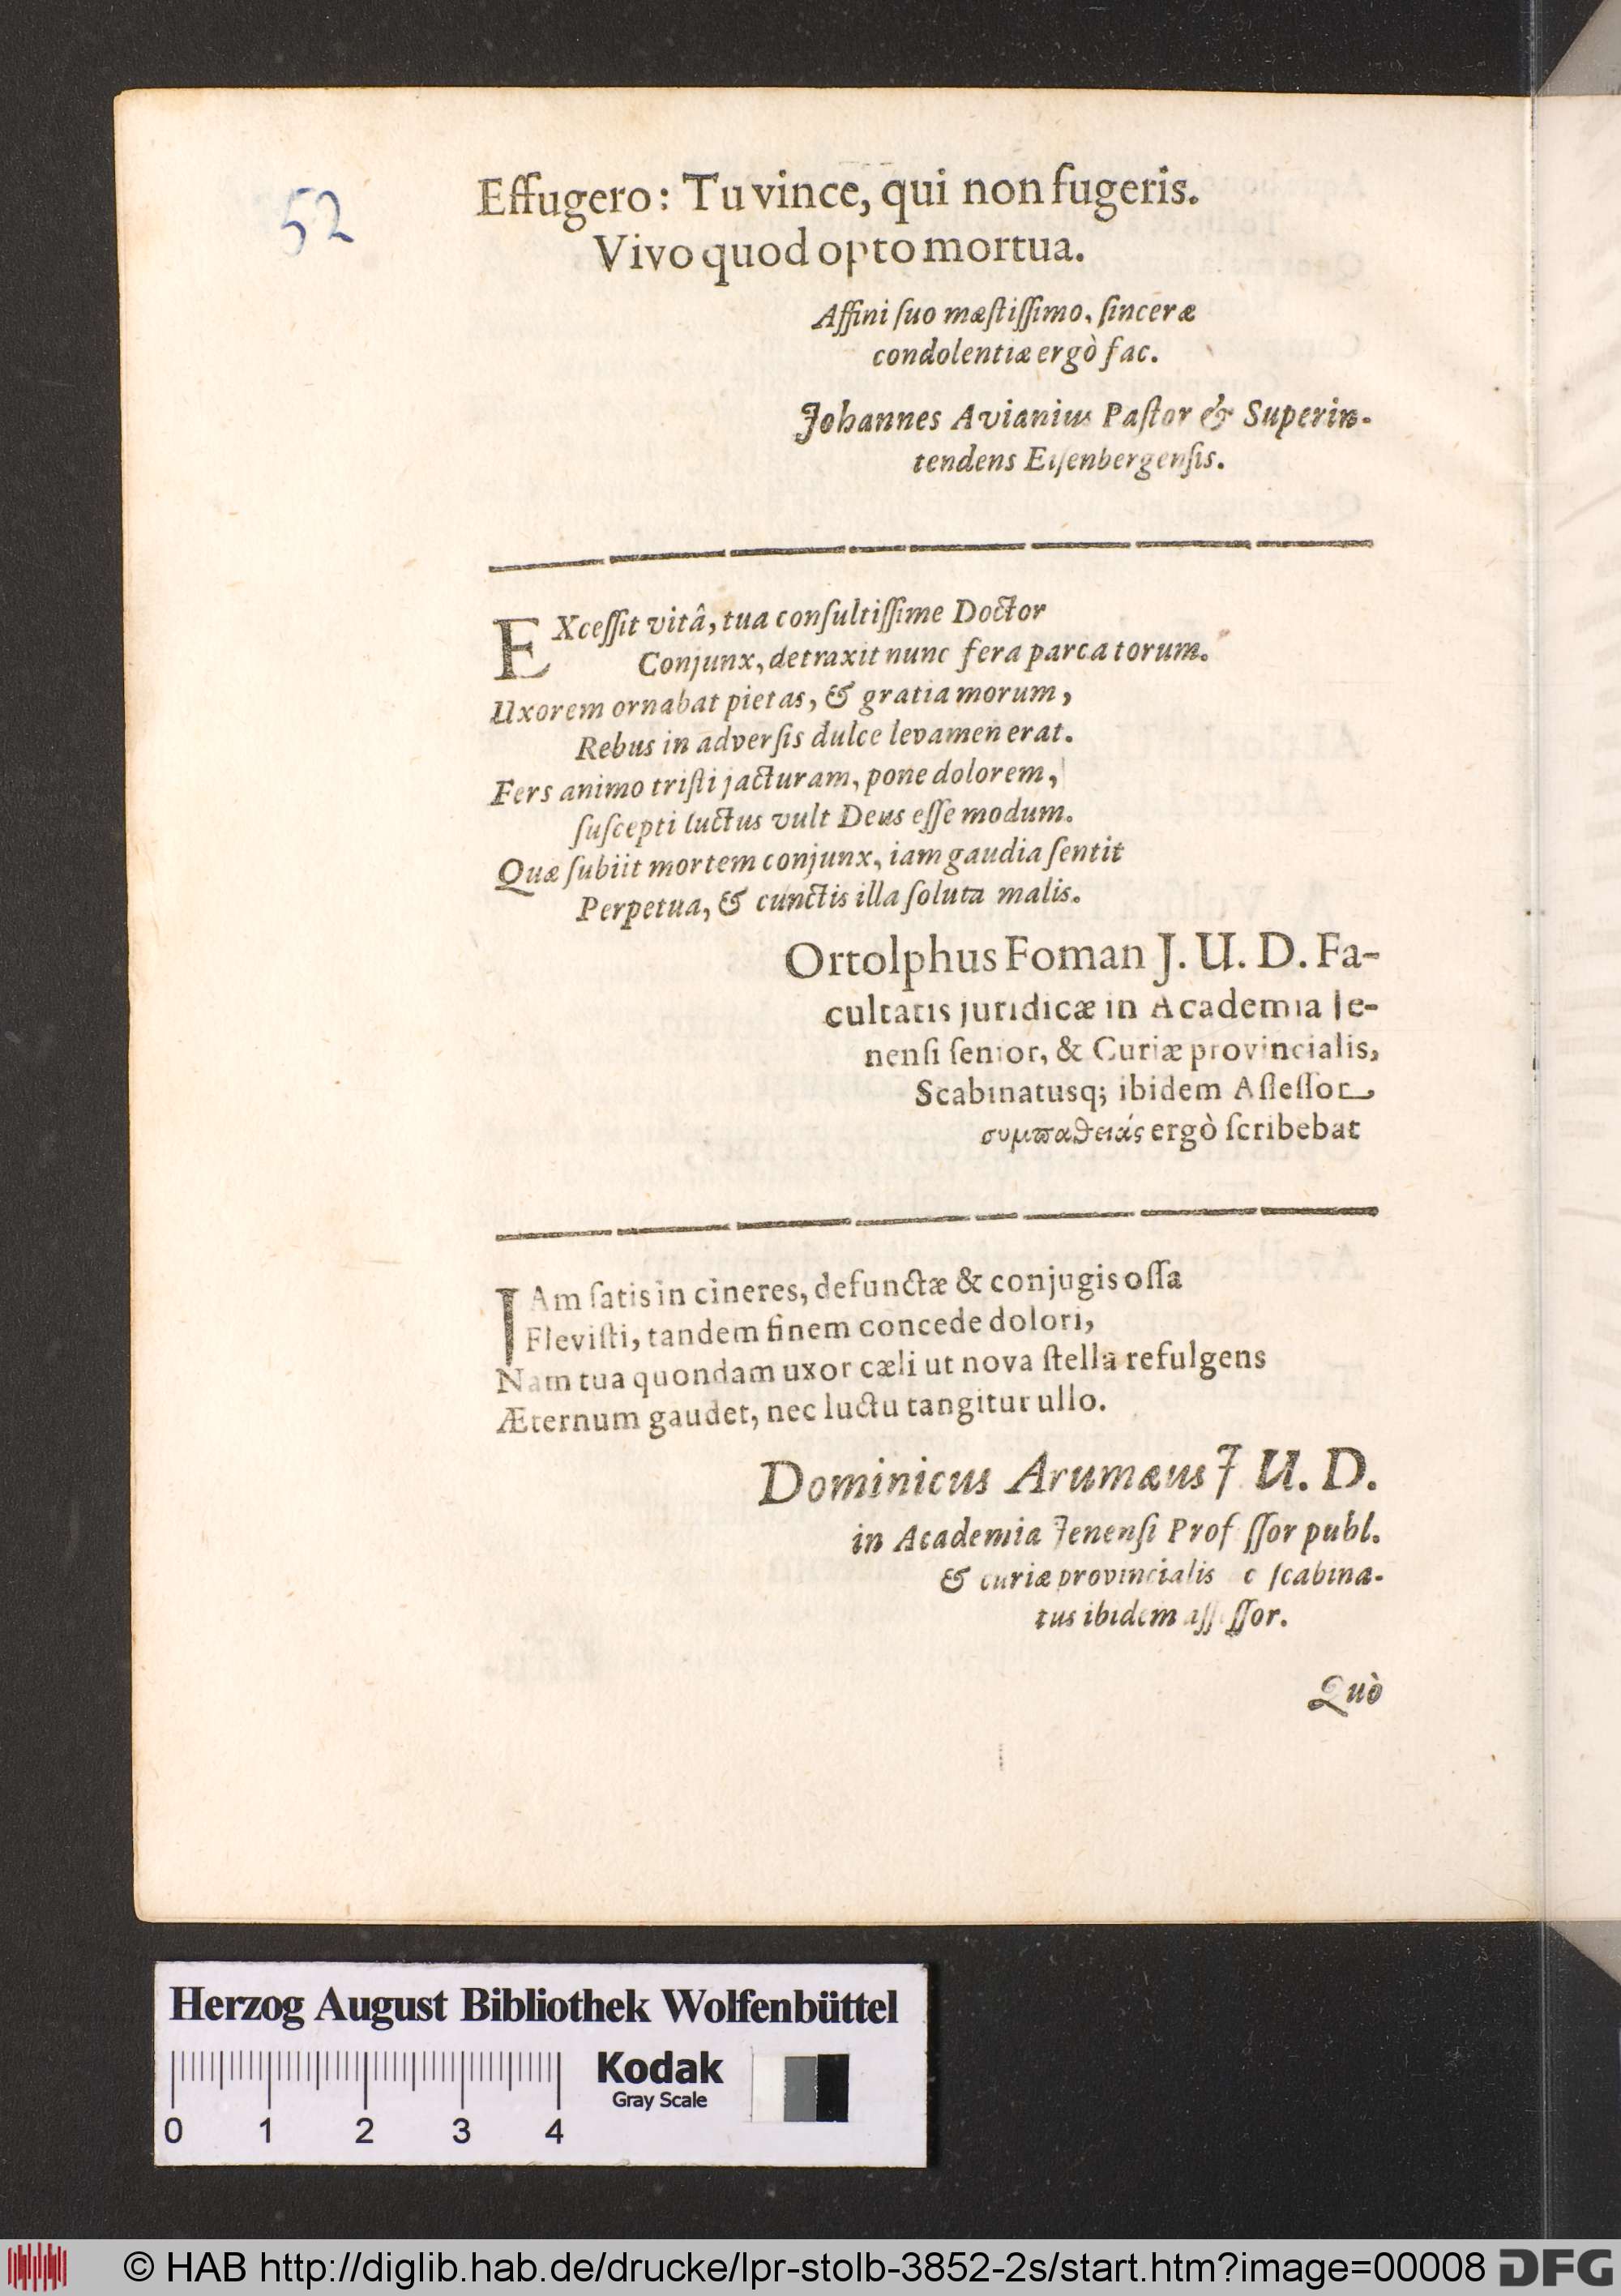 52
Effugero: Tu vince, qui non fugeris.
Vivo quod opto mortua.
Affini ſuo mæſtiſſimo, ſinceræ
condolentiæ ergò fac.
Johannes Avianius Paſtor & Superin-
tendens Eiſenbergenſis.
EXceſſit vitâ, tua conſultiſſime Doctor
Conjunx, detraxit nunc fera parca torum.
Uxorem ornabat pietas, & gratia morum,
Rebus in adverſis dulce levamen erat.
Fers animo triſti jacturam, pone dolorem,
ſuſcepti luctus vult Deus eſſe modum.
Quæ ſubiit mortem conjunx, iam gaudia ſentit
Perpetua, & cunctis illa ſoluta malis.
Ortolphus Foman J. U. D. Fa-
cultatis juridicæ in Academia Je-
nenſi ſenior, & Curiæ provincialis,
Scabinatusq; ibidem Aſſeſſor
συμπαθειάς ergò ſcribebat
IAm ſatis in cineres, defunctæ & conjugis oſſa
Fleviſti, tandem finem concede dolori,
Nam tua quondam uxor cæli ut nova ſtella refulgens
Æternum gaudet, nec luctu tangitur ullo.
Dominicus Arumæus J U. D.
in Academia Jenenſi Prof ſſor publ.
& curiæ provincialis c ſcabina-
tus ibidem aſſ ſſor.
Quò
Herzog August Bibliothek Wolfenbüttel
Kodak
Gray Scale
0 1 2 3 4
© HAB http://diglib.hab.de/drucke/lpr-stolb-3852-2s/start.htm?image=00008 DFG